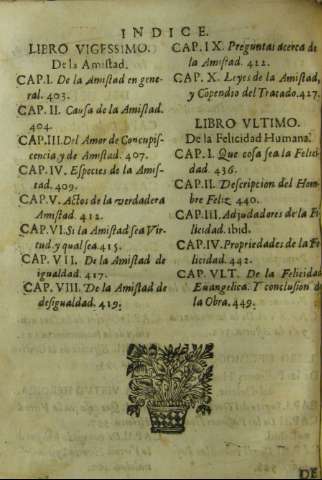 INDICE.
LIBRO VIGESSIMO.
De la Amistad.
CAP. I. De la Amistad en gene-
ral. 403.
CAP. II. Causa de la Amistad.
404.
CAP. III. Del Amor de Concupis-
cencia y de Amistad. 407.
CAP. IV. Especies de la Amis-
tad. 409.
CAP. V. Actos de la verdadera
Amistad. 412.
CAP. VI. Si la Amistad sea Vir-
tud, y qual sea 415.
CAP. VII. De la Amistad de
igualdad. 417.
CAP. VIII. De la Amistad de
desigualdad. 419.
CAP. IX. Preguntas acerca de
la Amistad. 422.
CAP. X. Leyes de la Amistad,
y Copendio del Tratado. 427.
LIBRO VLTIMO.
De la Felicidad Humana.
CAP. I. Que cosa sea la Felici-
dad. 436.
CAP. II. Descripcion del Hom-
bre Feliz. 440.
CAP. III. Adjudadores de la Fe-
licidad. ibid.
CAP. IV. Propriedades de la Fe-
licidad. 442.
CAP. VLT. De la Felicidad
Euangelica. Y conclusion de
la Obra. 449.
DE